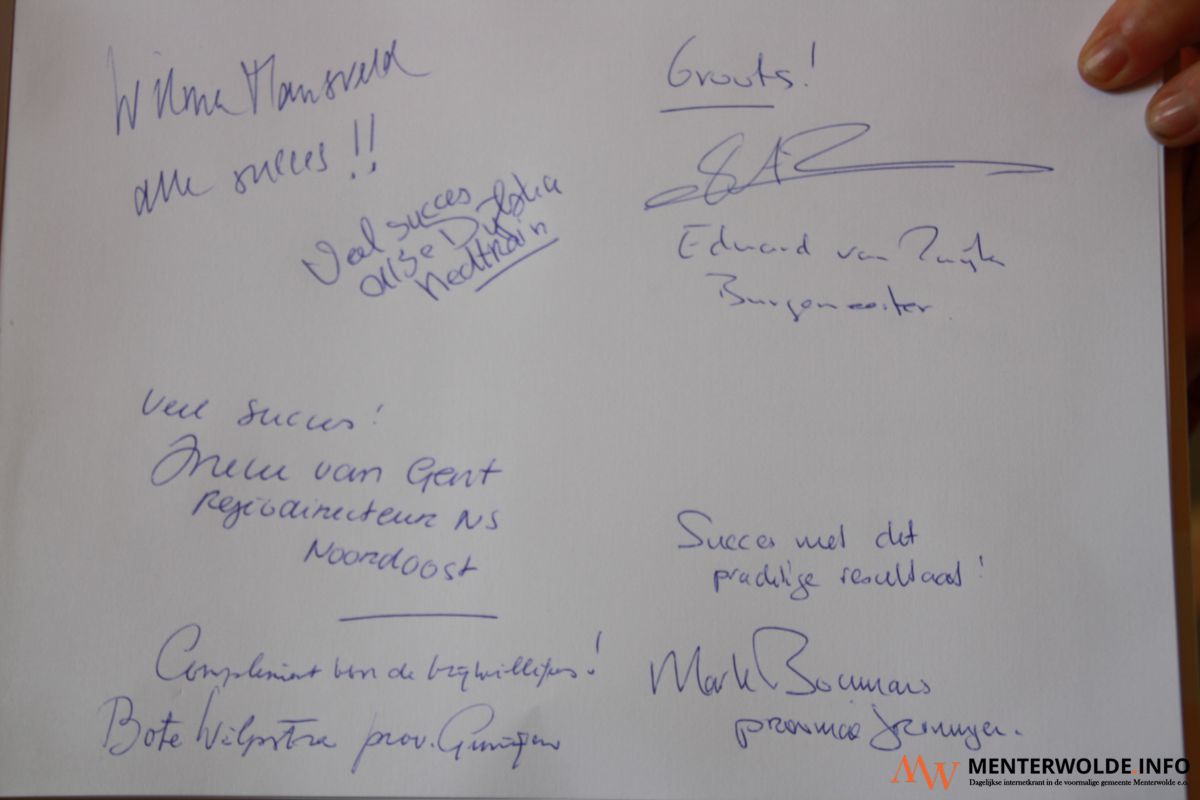 Wilma Mansveld
alle succes!!
Veel succes
Dijkstra
Nedtrain
Groots!
Eduard van Zuijlen
Burgemeester.
Veel succes!
Ineke van Gent
Regiodirecteur NS
Noordoost
Compliment van de vrijwilligers!
Bote Wilpstra prov. Groningen
Succes met dit
prachtige resultaat!
Mark Boumans
provincie Groningen.
MW MENTERWOLDE.INFO
Dagelijkse internetkrant in de voormalige gemeente Menterwolde e.o.